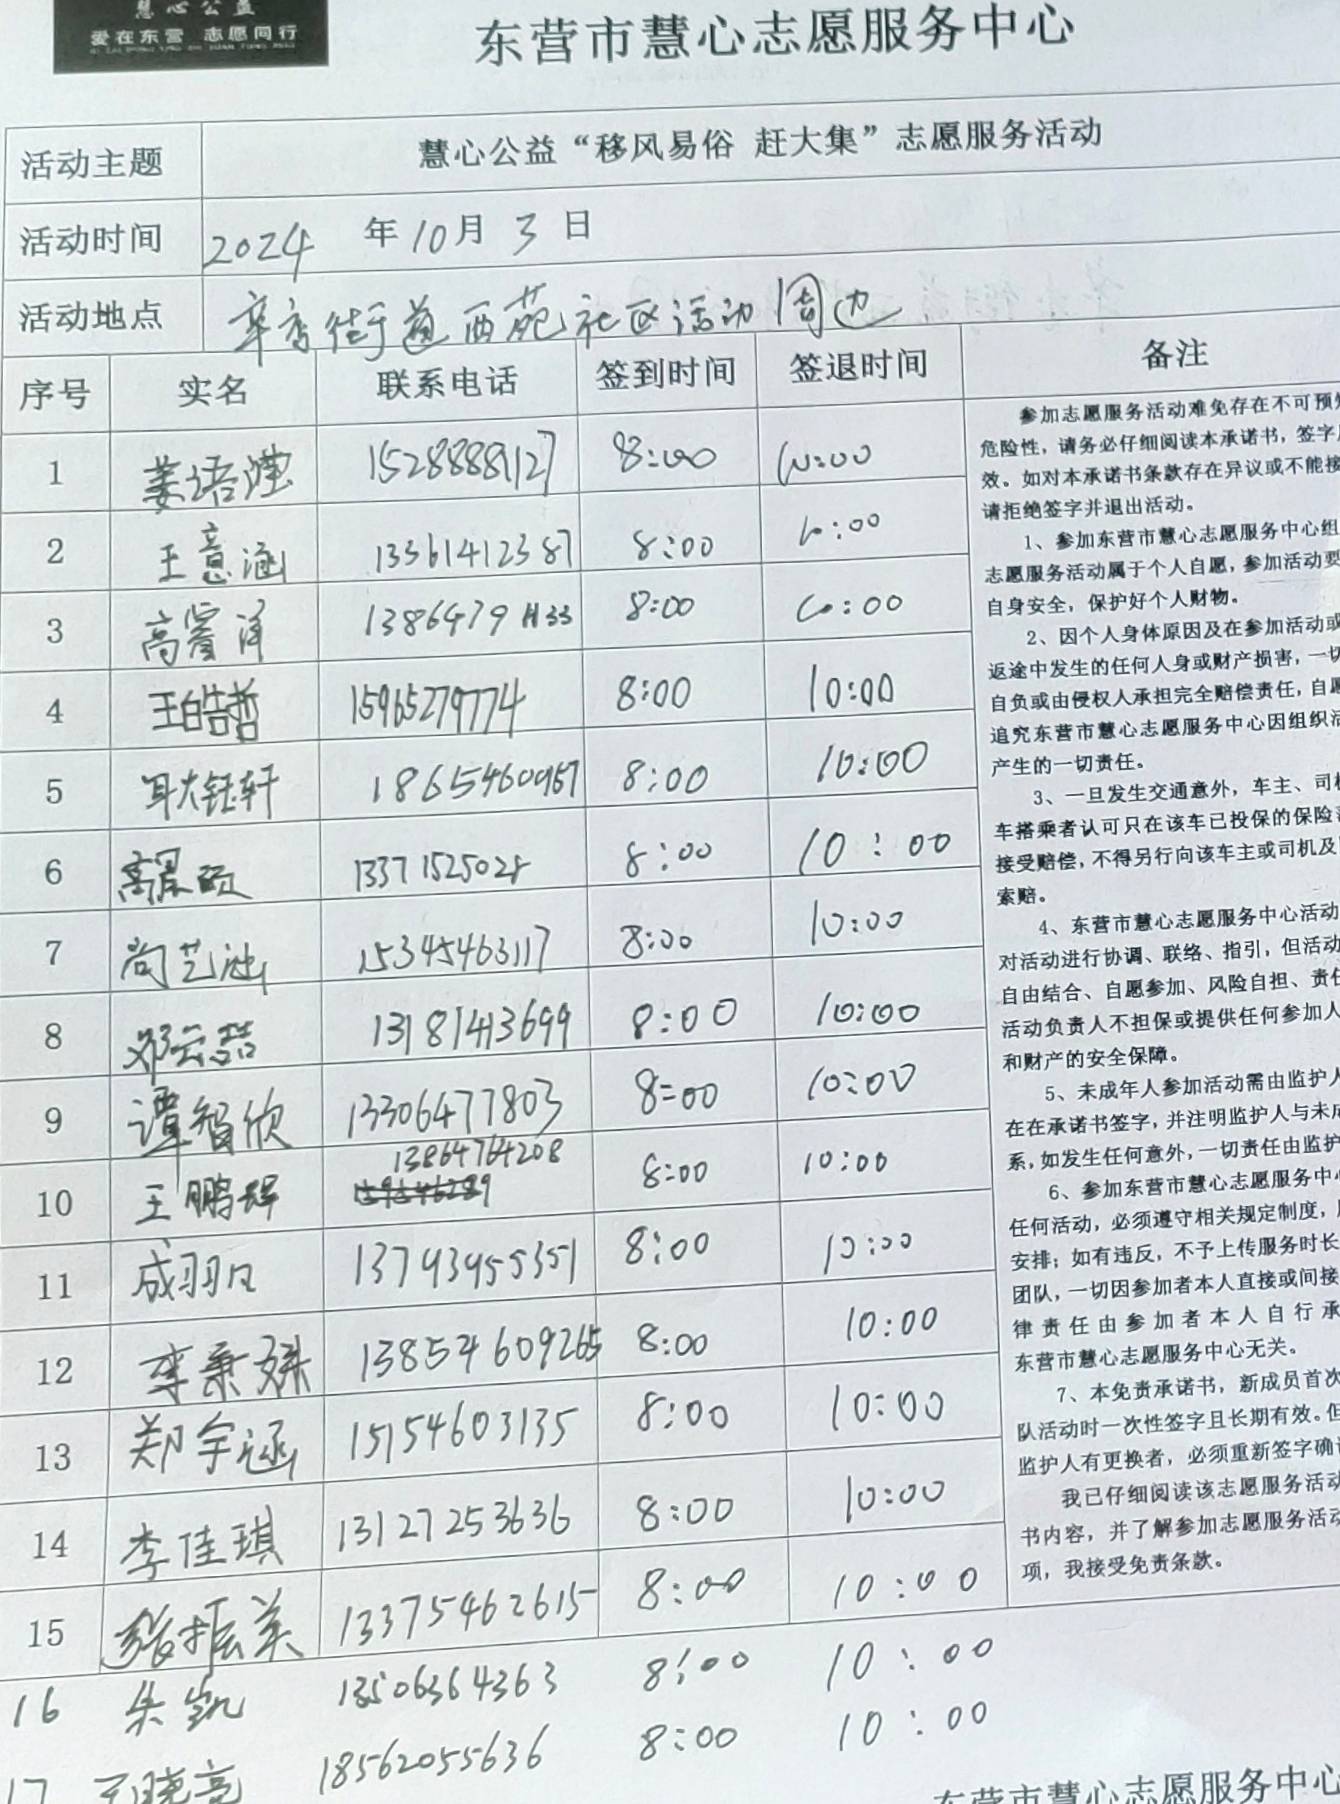 慧心公益
爱在东营 志愿同行
东营市慧心志愿服务中心
活动主题 慧心公益“移风易俗 赶大集”志愿服务活动
活动时间 2024 年 10 月 3 日
活动地点 辛店街道西苑社区活动周边
序号 实名 联系电话 签到时间 签退时间 备注
1 姜语滢 15288881127 8:00 10:00
2 王意涵 13361412387 8:00 10:00
3 高睿泽 1386479 8:00 10:00
4 王皓哲 15965279774 8:00 10:00
5 耿钰轩 18654600957 8:00 10:00
6 高晨硕 13371525028 8:00 10:00
7 尚艺涵 15345463117 8:00 10:00
8 邓云喆 13181413699 8:00 10:00
9 谭智欣 13306477803 8:00 10:00
10 王鹏辉 13864764208 8:00 10:00
11 成羽凡 13793955351 8:00 10:00
12 李秉姝 13854609265 8:00 10:00
13 郑宇涵 15154603135 8:00 10:00
14 李佳琪 13127253636 8:00 10:00
15 张振美 13375462615 8:00 10:00
16 朱凯 13506364363 8:00 10:00
17 王晓亮 18562055636 8:00 10:00
参加志愿服务活动难免存在不可预知
危险性，请务必仔细阅读本承诺书，签字
效。如对本承诺书条款存在异议或不能接
请拒绝签字并退出活动。
1、参加东营市慧心志愿服务中心组
志愿服务活动属于个人自愿，参加活动要
自身安全，保护好个人财物。
2、因个人身体原因及在参加活动或
返途中发生的任何人身或财产损害，一切
自负或由侵权人承担完全赔偿责任，自愿
追究东营市慧心志愿服务中心因组织活
产生的一切责任。
3、一旦发生交通意外，车主、司机
车搭乘者认可只在该车已投保的保险
接受赔偿，不得另行向该车主或司机及
索赔。
4、东营市慧心志愿服务中心活动
对活动进行协调、联络、指引，但活动
自由结合、自愿参加、风险自担、责任
活动负责人不担保或提供任何参加人
和财产的安全保障。
5、未成年人参加活动需由监护人
在在承诺书签字，并注明监护人与未成
系，如发生任何意外，一切责任由监护
6、参加东营市慧心志愿服务中心
任何活动，必须遵守相关规定制度，
安排；如有违反，不予上传服务时长
团队，一切因参加者本人直接或间接
律责任由参加者本人自行承
东营市慧心志愿服务中心无关。
7、本免责承诺书，新成员首次
队活动时一次性签字且长期有效。但
监护人有更换者，必须重新签字确认
我已仔细阅读该志愿服务活动
书内容，并了解参加志愿服务活动
项，我接受免责条款。
东营市慧心志愿服务中心